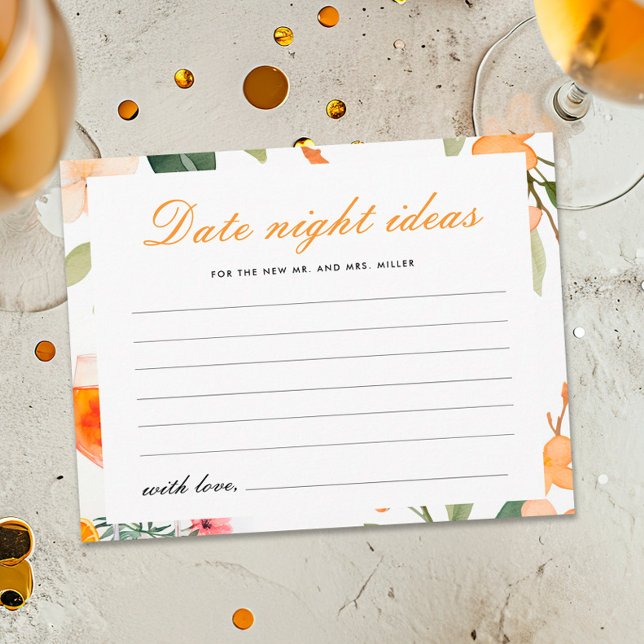 Date night ideas
FOR THE NEW MR. AND MRS. MILLER
with love,